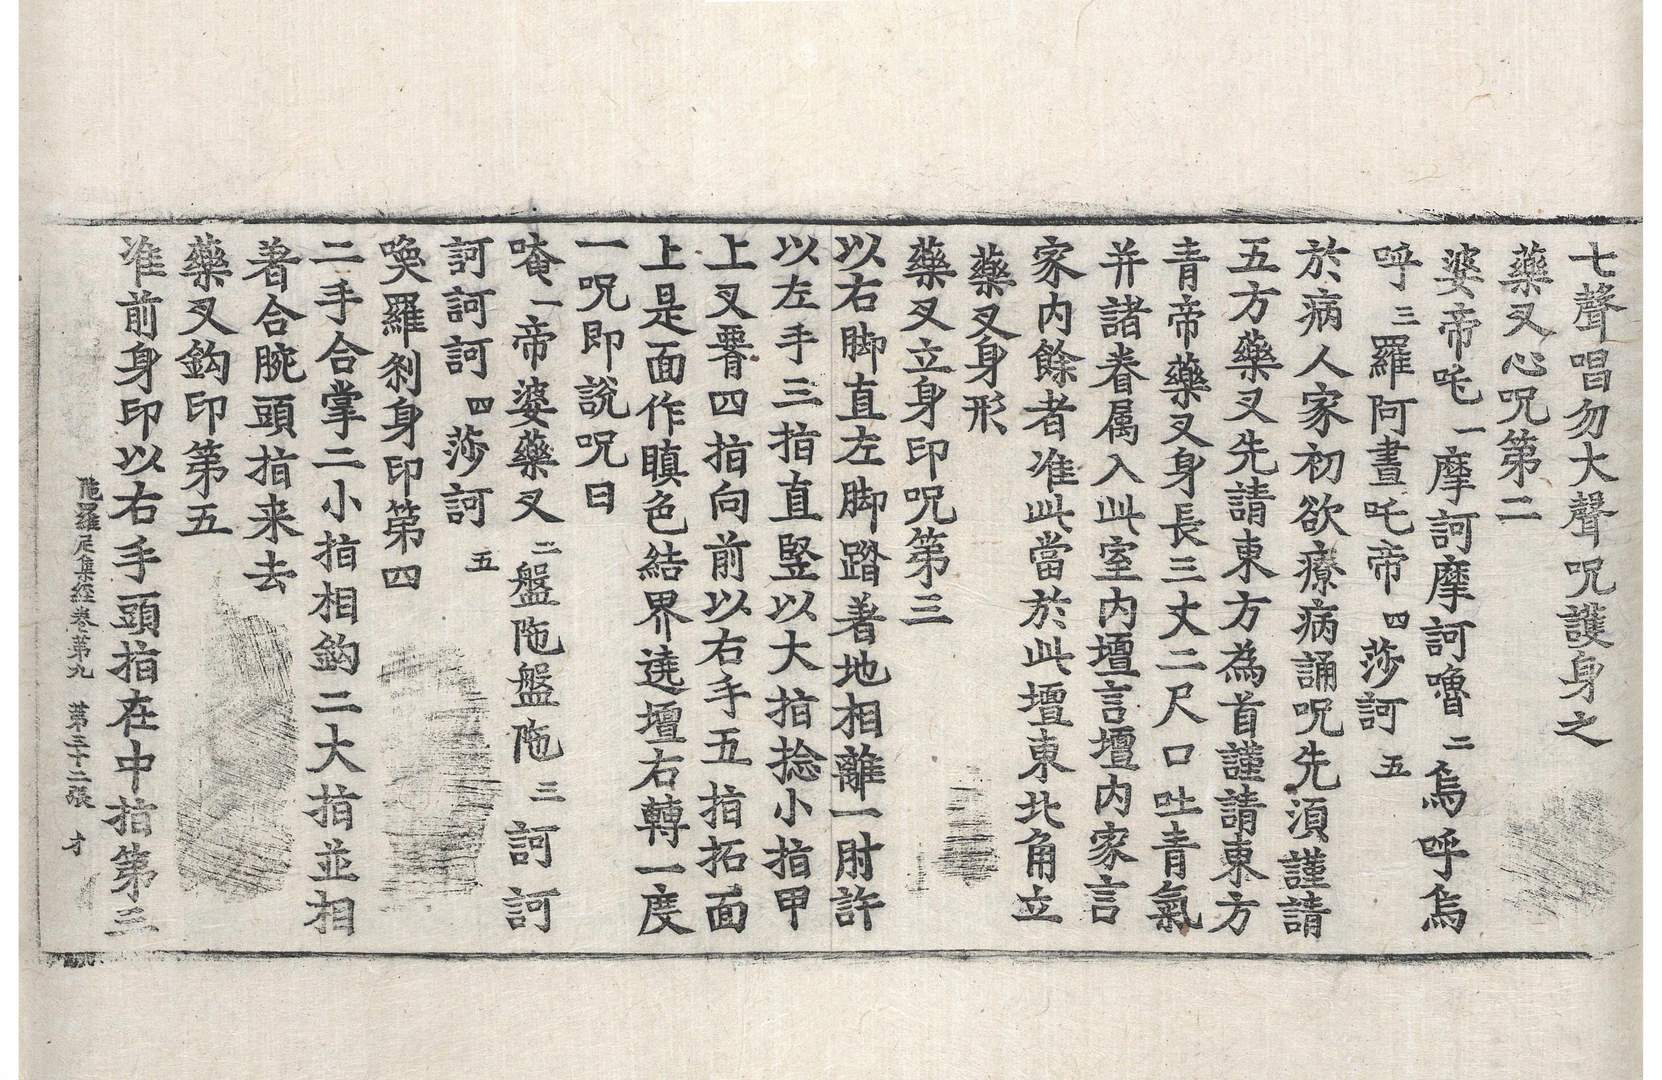 七聲唱勿大聲呪護身之
藥叉心呪第二
婆帝吒一摩訶摩訶嚕二烏呼烏
呼三羅阿晝吒帝四莎訶五
於病人家初欲療病誦呪先湏謹請
五方藥叉先請東方為首謹請東方
青帝藥叉身長三丈二尺口吐青氣
并諸眷属入此室內壇言壇內家言
家內餘者准此當於此壇東北角立
藥叉身形
藥叉立身印呪第三
以右脚直左脚踏著地相離一肘許
以左手三指直竪以大指捻小指甲
上叉臂四指向前以右手五指拓面
上是面作瞋色結界遶壇右轉一度
一呪即說呪曰
唵一帝婆藥叉二盤陁盤陁三訶訶
訶訶訶四莎訶五
喚羅剎身印第四
二手合掌二小指相鈎二大指並相
著合腕頭指来去
藥叉鈎印第五
准前身印以右手頭指在中指第三
陁羅尼集經卷第九 第三十二張 才